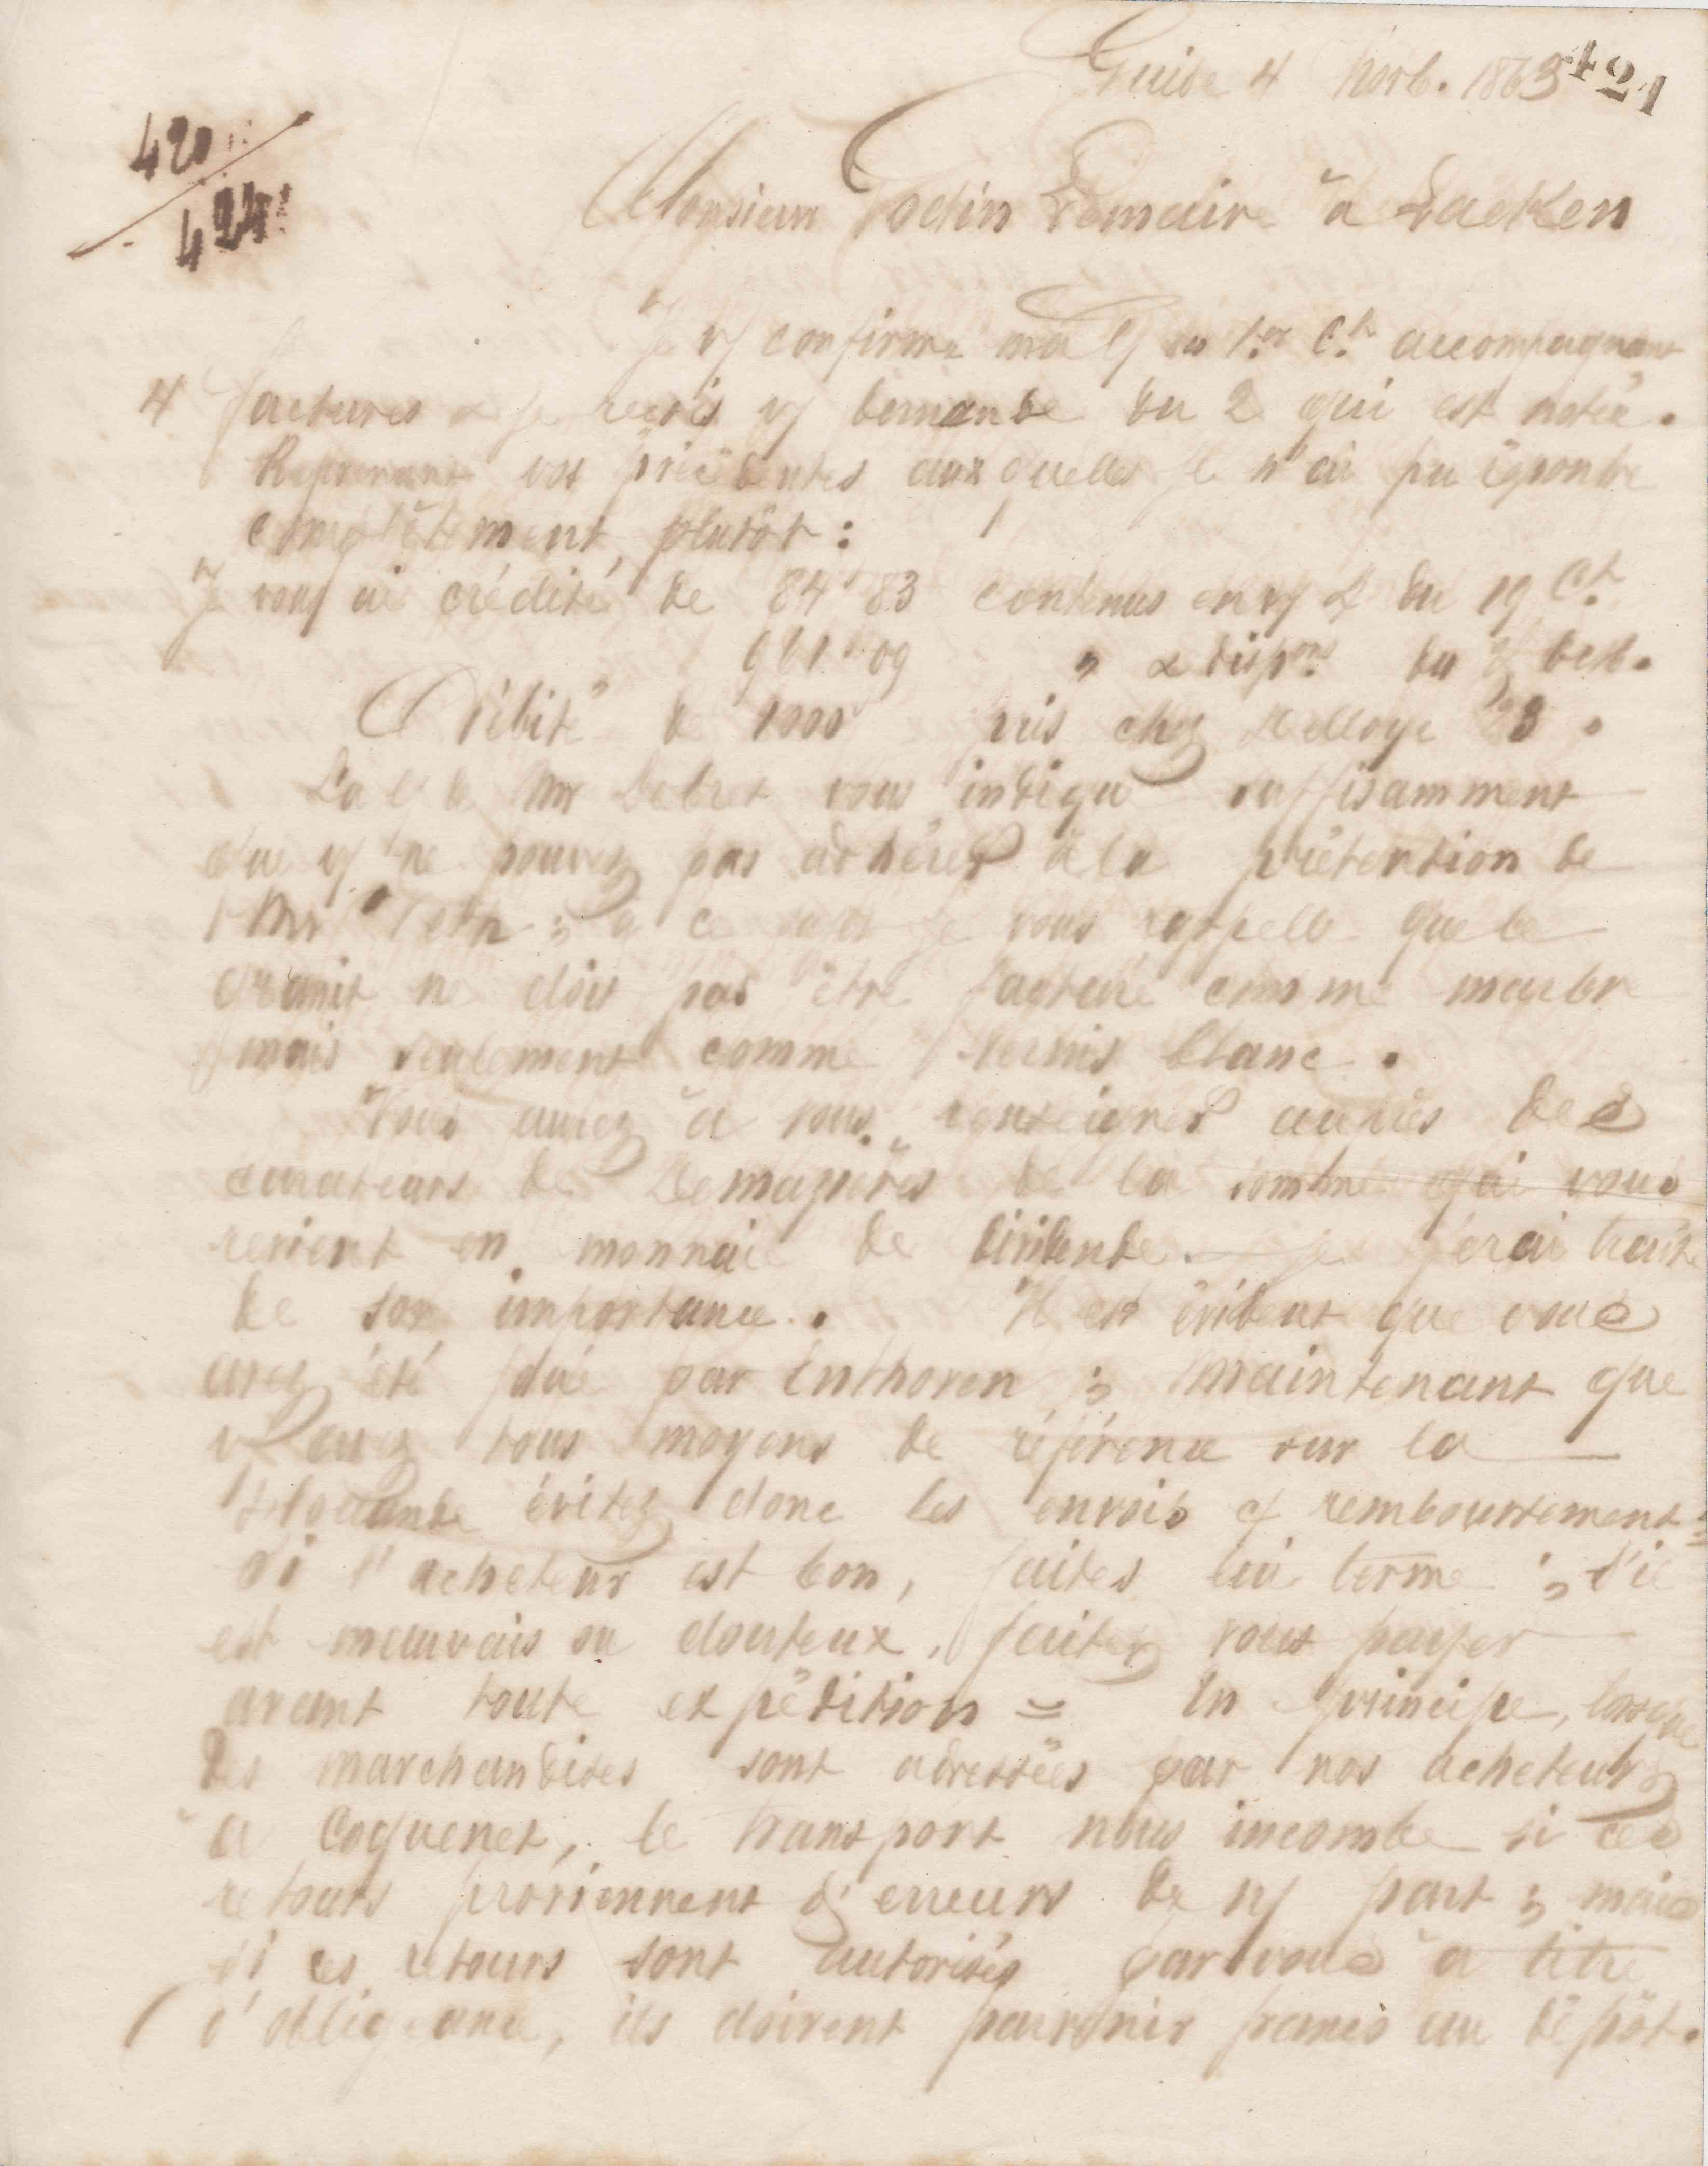 Guise 4 Novb. 1863
421
420
424
Monsieur Godin Lemaire à Laeken
Je vs confirme ma 1er Ct accompagnant
4 factures & je reçois vs demande du 2 qui est notée.
Reprenant vos précédentes auxquelles je n'ai pu répondre
complètement plutôt :
Je vous ai crédité de 84 83 contenus en vs du 19 Ct
961 09 " & disp.
Débité de 1000 pris chez Delloye
La de Mr Debret vous indique suffisamment
que vs ne pouvez pas adhérer à la prétention de
Mr ; à ce sujet je vous rappelle que le
granit ne doit pas être facturé comme marbre
mais seulement comme vernis blanc.
Vous aurez à vous renseigner auprès des
curateurs de Demazières de la somme qui vous
revient en monnaie de dividende. je ferai traite
de son importance. Il est évident que vous
avez été joué par Enthoven ; maintenant que
vs avez tous moyens de référence sur la
évitez donc les envois ct remboursement =
si l'acheteur est bon, faites lui terme ; s'il
est mauvais ou douteux, faites vous payer
avant toute expédition = En principe, lorsque
des marchandises sont adressées par nos acheteurs
à Coquenet, le transport nous incombe si ces
retours proviennent d'erreurs de ns part ; mais
si ces retours sont autorisés par vous à titre
d'obligeance, ils doivent parvenir francs au dépôt.